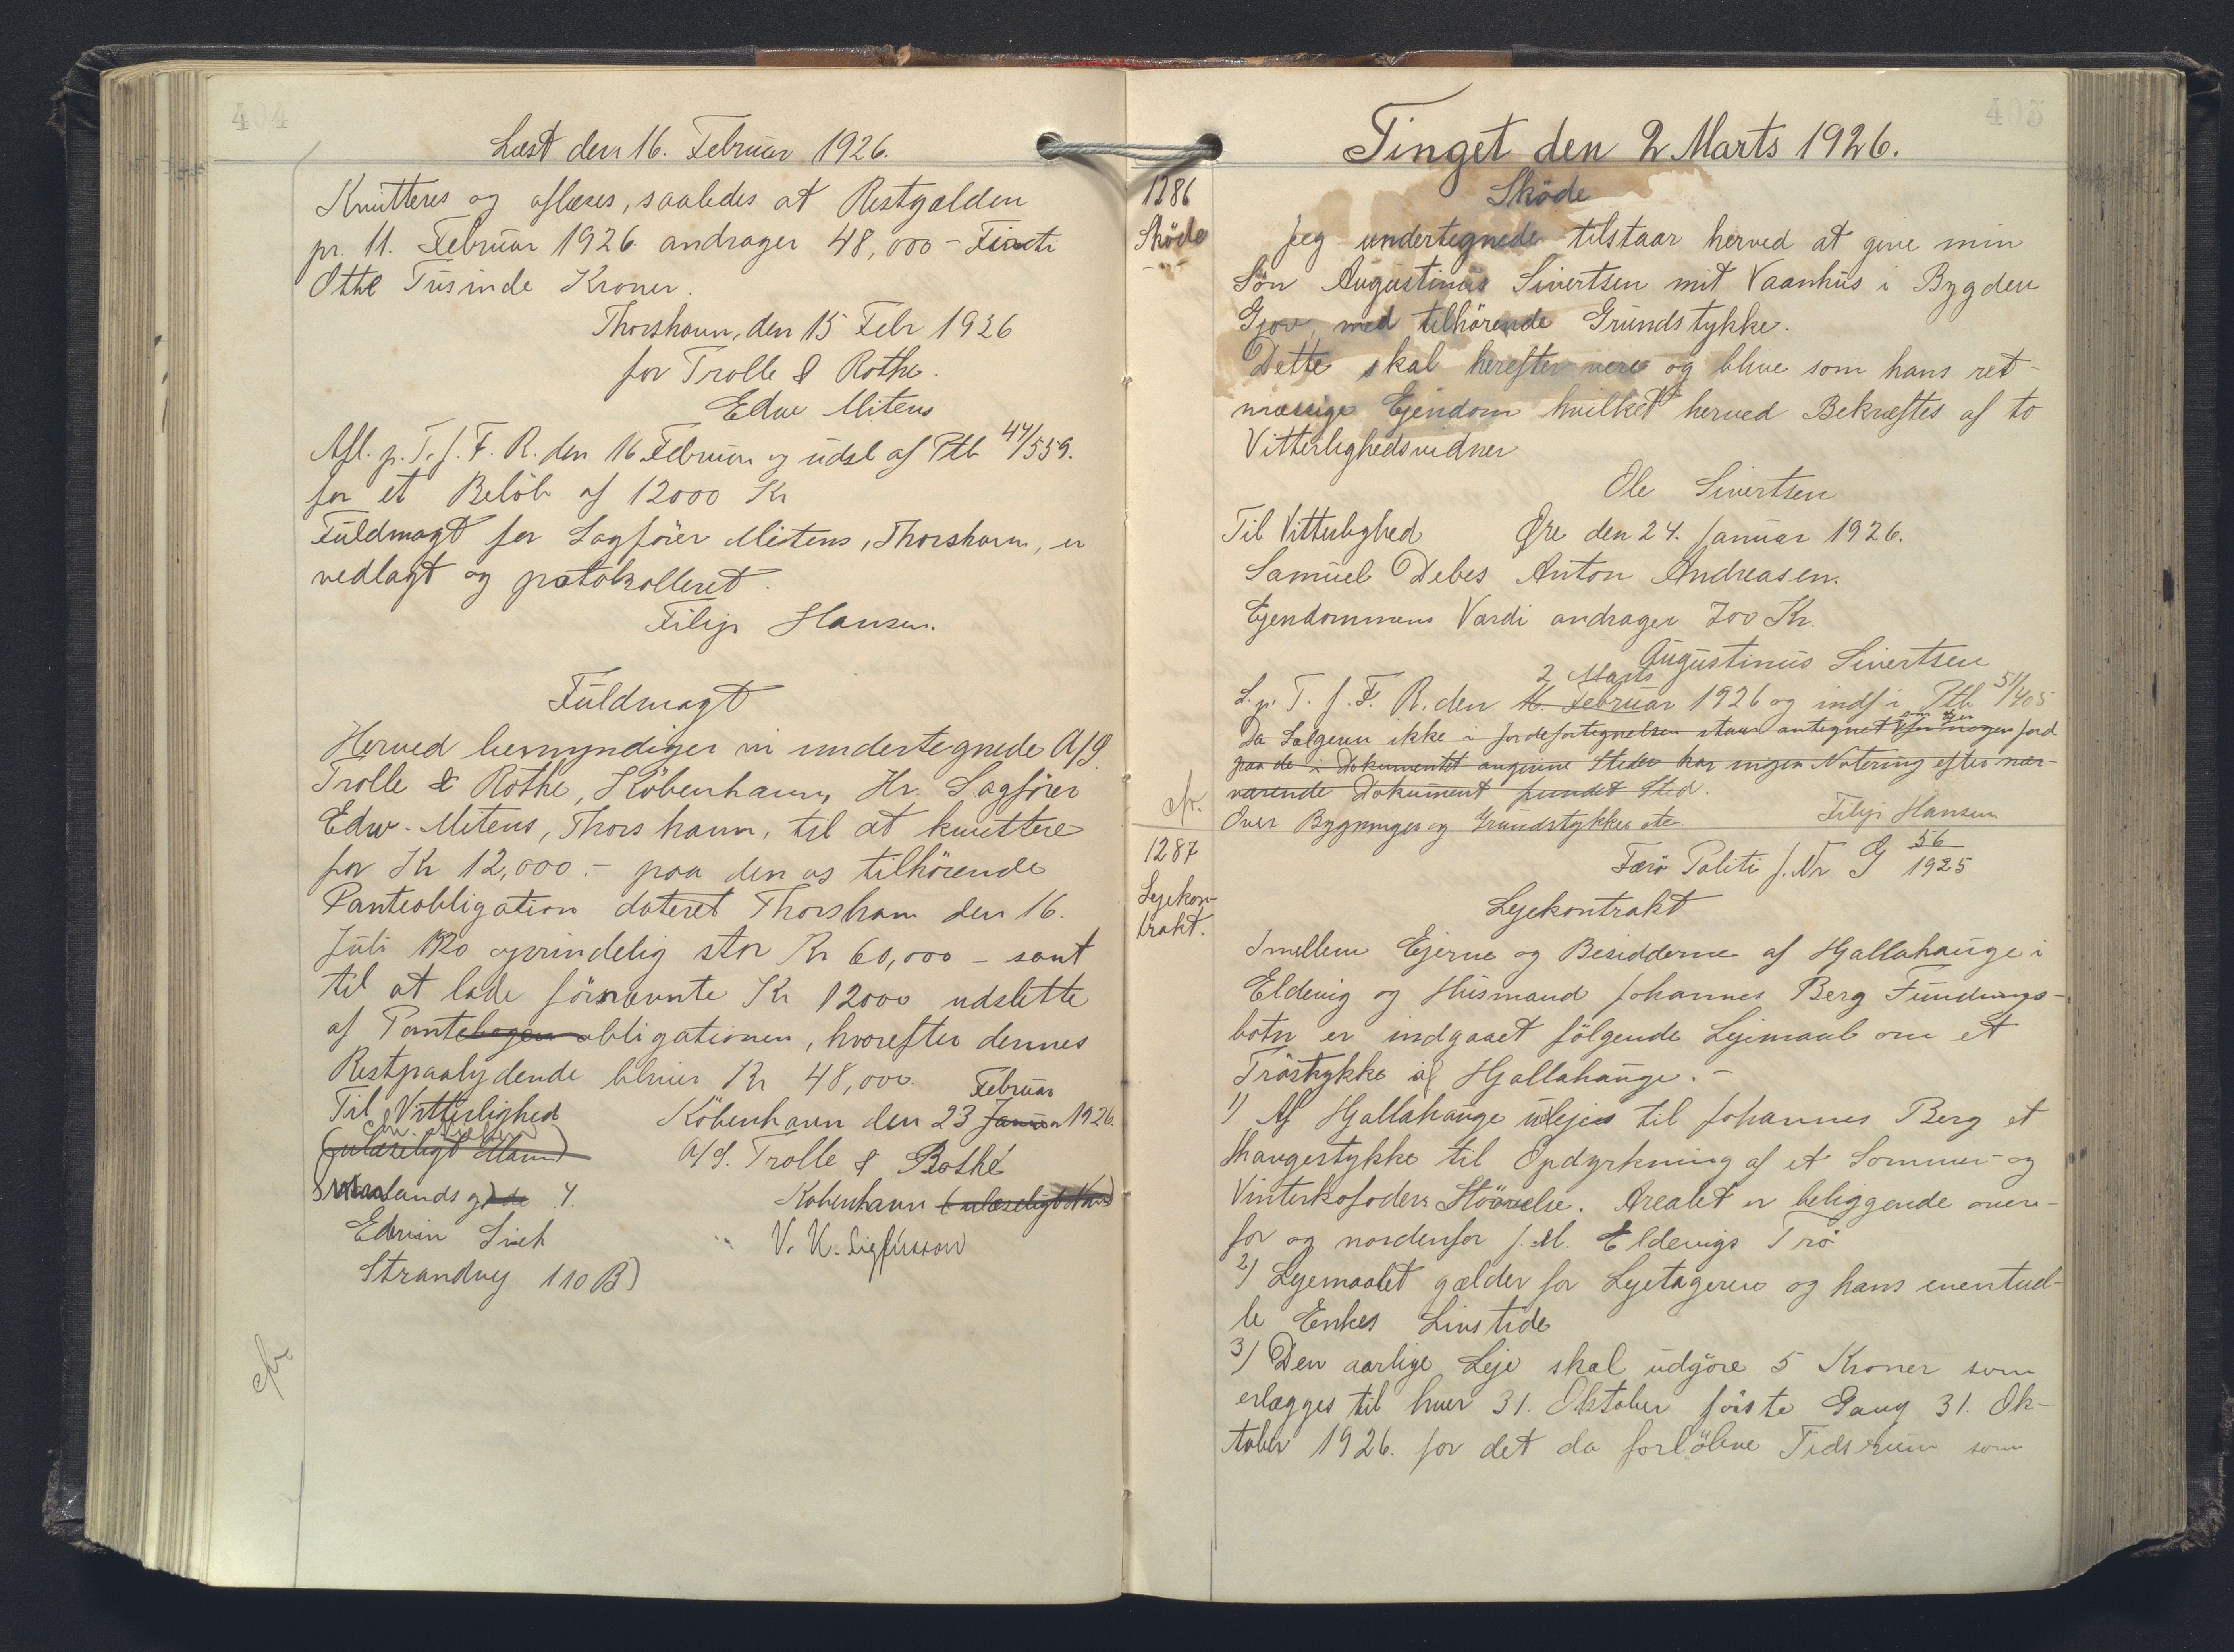 404
Læst den 16. Februar 1926.
Kvitteres og aflæses, saaledes at Restgælden
pr. 11. Februar 1926 andrager 48,000 - Firti
Otte Tusinde Kroner.
Thorshavn, den 15 Febr 1926
for Trolle & Rothe.
Edw Mitens
Afl. p. T. f. F. R. den 16 Februar og udsl af Ptb 44/559.
for et Beløb af 12000 Kr
Fuldmagt for Sagfører Mitens, Thorshavn, er
vedlagt og protokolleret.
Filip Hansen.
Fuldmagt
Herved bemyndiger vi undertegnede A/S
Trolle & Rothe, København, Hr. Sagfører
Edw. Mitens, Thorshavn, til at kvittere
for Kr 12,000.- paa den os tilhörende
Panteobligation dateret Thorshavn den 16.
Juli 1920 oprindelig stor Kr 60,000 - samt
til at lade förnævnte Kr 12000 udslette
af Pantebogen obligationen, hvorefter dennes
Restpaalydende bliver Kr 48,000.
Februar
Til Vitterlighed København den 23 Januar 1926.
(ulæseligt Navn) A/S. Trolle & Rothe
landsgade 4. København (ulæseligt Navn)
Edwin V. K. Sigfusson
Strandvej 110 B)
cfr.
405
Tinget den 2 Marts 1926.
1286
Sköde
Sköde
Jeg undertegnede tilstaar herved at give min
Sön Augustinus Sivertsen mit Vaanhus i Bygden
Gjov, med tilhörende Grundstykke.
Dette skal herefter være og blive som hans ret-
mæssige Ejendom hvilket herved Bekræftes af to
Vitterlighedsvidner
Ole Sivertsen
Til Vitterlighed Øre den 24. Januar 1926.
Samuel Debes Anton Andreasen.
Ejendommens Værdi andrager 700 Kr.
Augustinus Sivertsen
2 Marts
L. p. T. f. F. R. den 16. Februar 1926 og indf i Ptb 51/405
Da Sælgeren ikke i Jordefortegnelsen staar antegnet for nogen Jord
paa de i Dokumentet angivne Steder har ingen Notering efter nær-
værende Dokument fundet Sted.
cfr. Over Bygninger og Grundstykker etc. Filip Hansen
1287
Lejekon-
trakt.
Færö Politi J. Nr G 56/1925
Lejekontrakt
Imellem Ejerne og Besidderne af Hjallahauge i
Eldevig og Husmand Johannes Berg Funnings-
botn er indgaaet fölgende Lejemaal om et
Tröstykke af Hjallahauge.-
1) Af Hjallahauge udlejes til Johannes Berg et
Haugestykke til Opdyrkning af et Sommer- og
Vinterkofoders Störrelse. Arealet er beliggende oven-
for og nordenfor J. M. Eldevigs Trö
2) Lejemaalet gælder for Lejetageren og hans eventuel-
le Enkes Livstide
3) Den aarlige Leje skal udgöre 5 Kroner som
erlægges til hver 31. Oktober förste Gang 31. Ok-
tober 1926. for det da forlöbne Tidsrum som